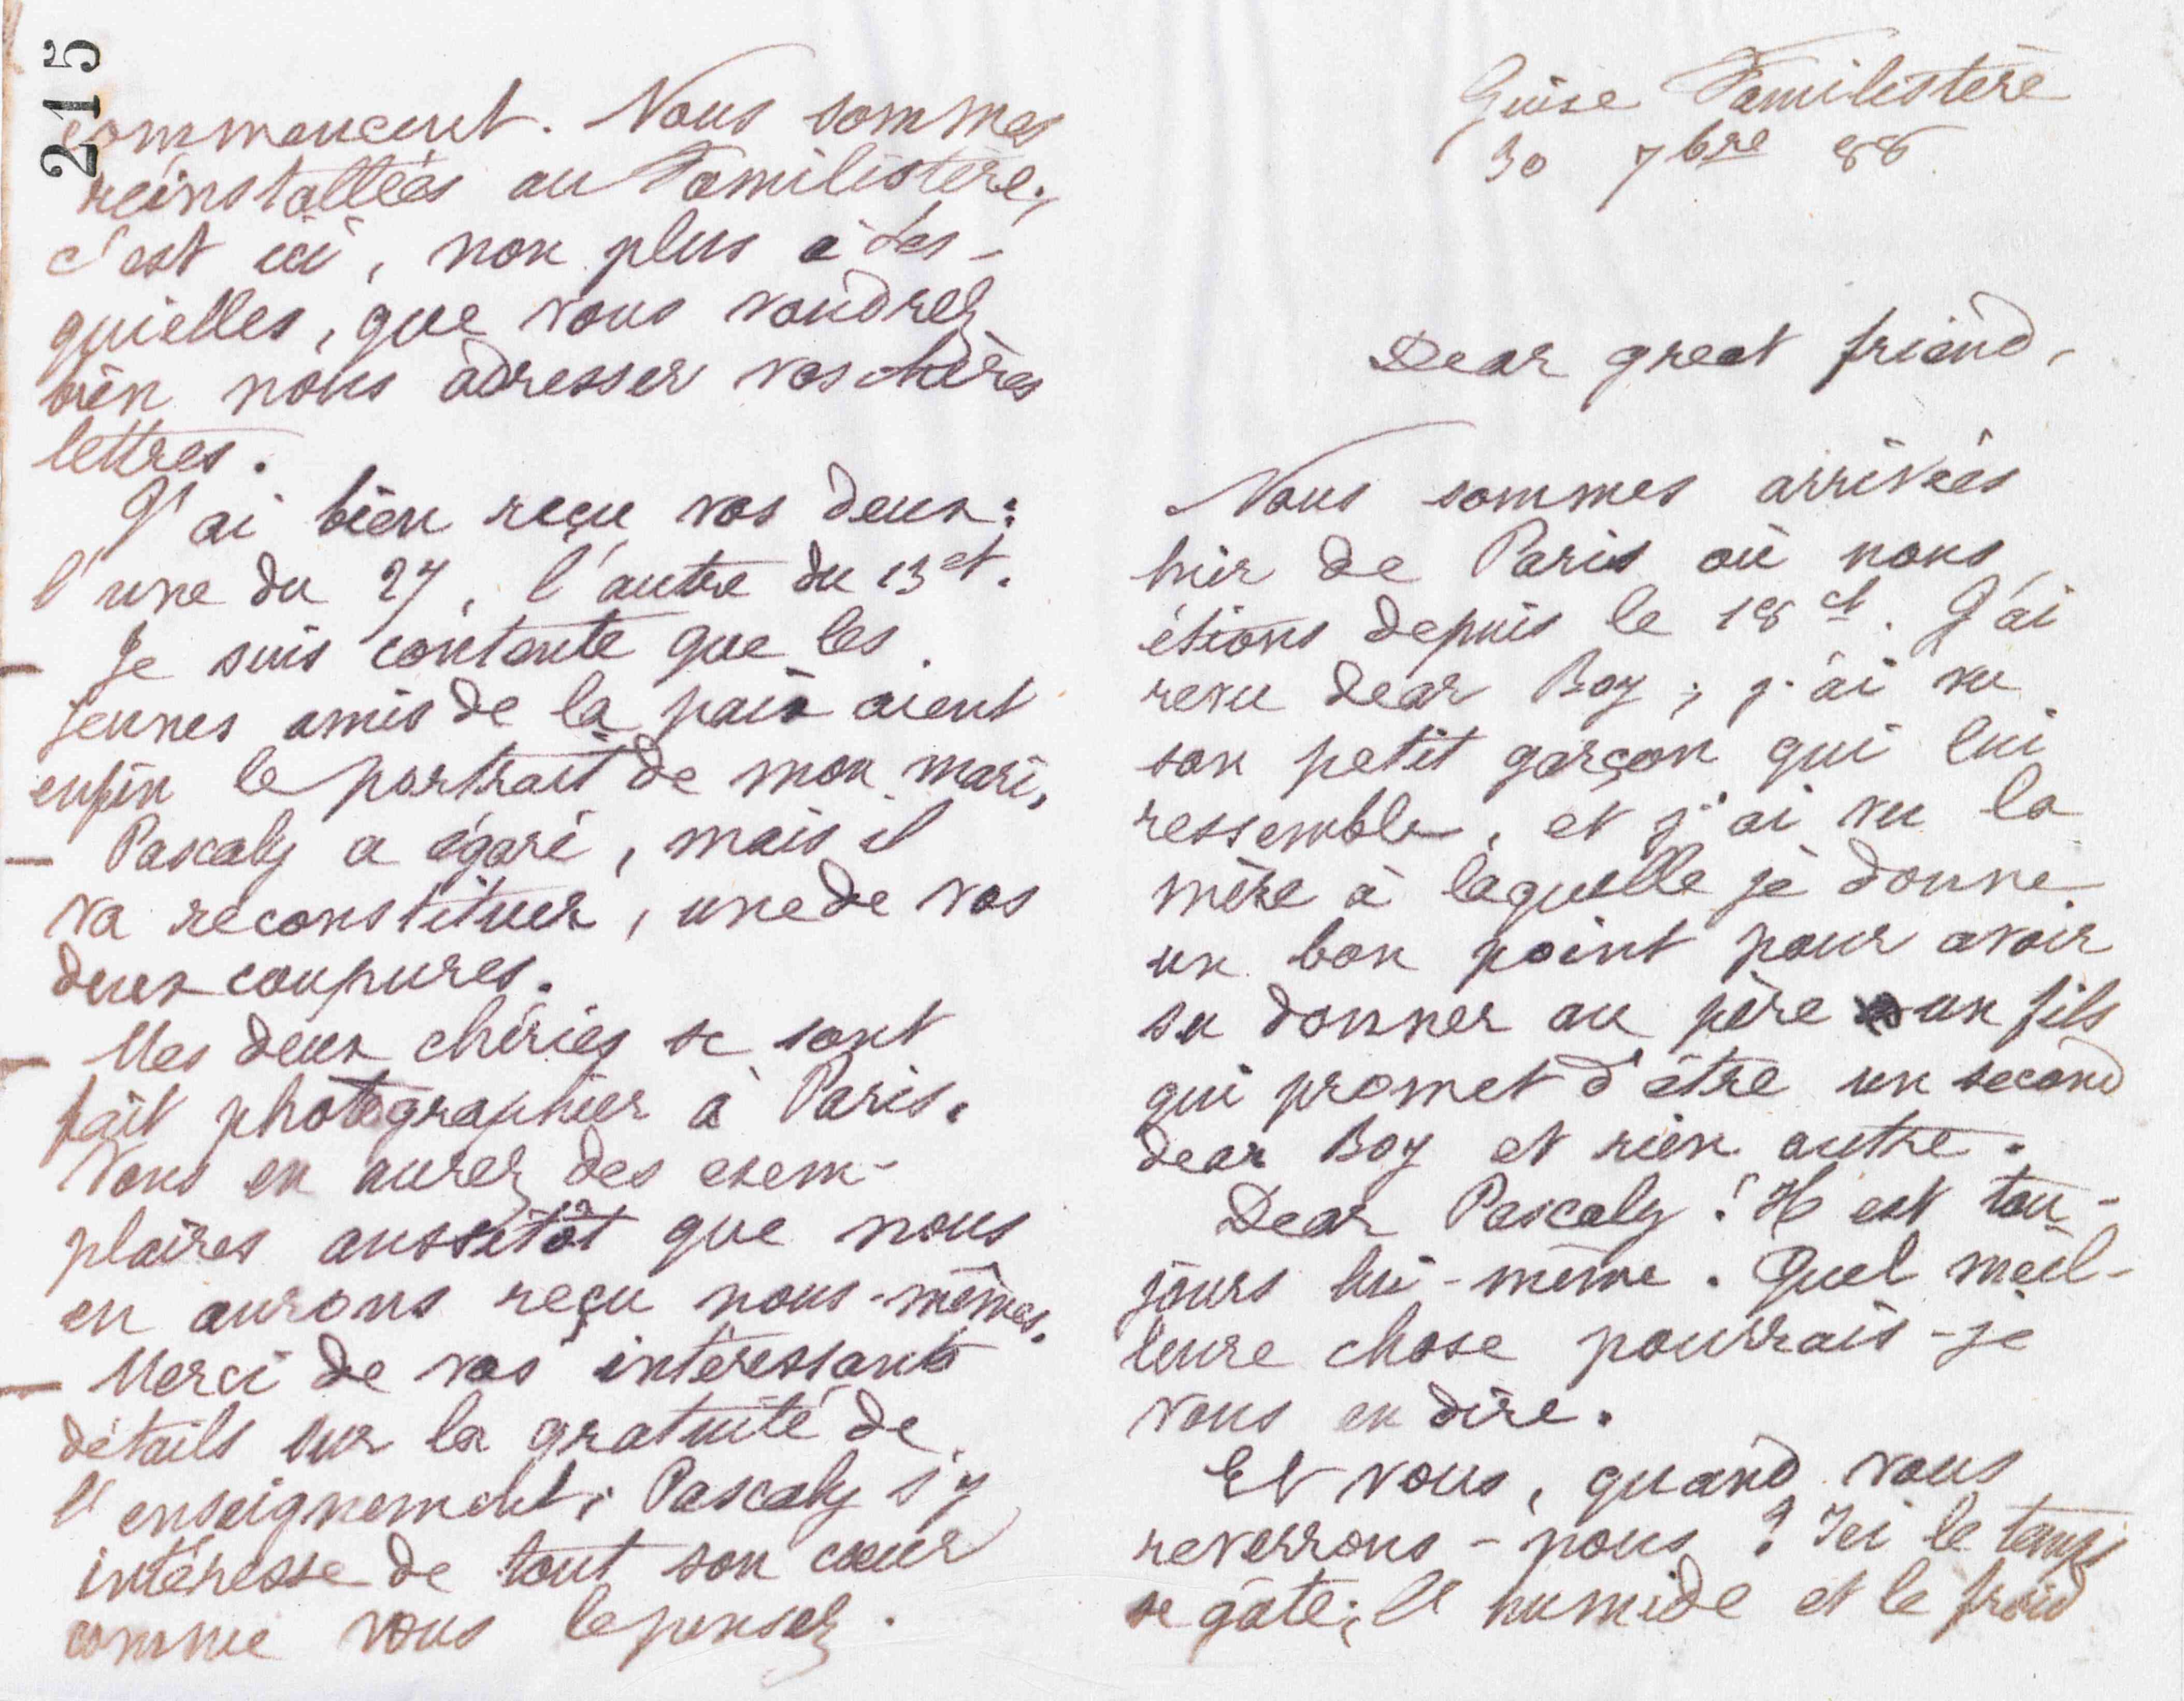 Guise Familistère
30 7bre 88
Dear great friend,
Nous sommes arrivées
hier de Paris où nous
étions depuis le 18 ct. J'ai
revu dear Boy ; j'ai vu
son petit garçon qui lui
ressemble, et j'ai vu la
mère à laquelle je donne
un bon point pour avoir
su donner au père un fils
qui promet d'être un second
dear Boy et rien autre.
Dear Pascaly ! Il est tou-
jours lui-même. Quel meil-
leure chose pourrais-je
vous en dire.
Et vous, quand vous
reverrons-nous ? Ici le temps
se gâte ; l'humide et le froid
215
commencent. Nous sommes
réinstallées au Familistère,
c'est ici, non plus à Les-
quielles, que vous voudrez
bien nous adresser vos chères
lettres.
J'ai bien reçu vos deux :
l'une du 27, l'autre du 13 ct.
— Je suis contente que les
jeunes amis de la paix aient
enfin le portrait de mon mari.
— Pascaly a égaré, mais il
va reconstituer, une de vos
deux coupures.
— Mes deux chéries se sont
fait photographier à Paris.
Vous en aurez des exem-
plaires aussitôt que nous
en aurons reçu nous-mêmes.
— Merci de vos intéressants
détails sur la gratuité de
l'enseignement ; Pascaly s'y
intéresse de tout son cœur
comme vous le pensez.